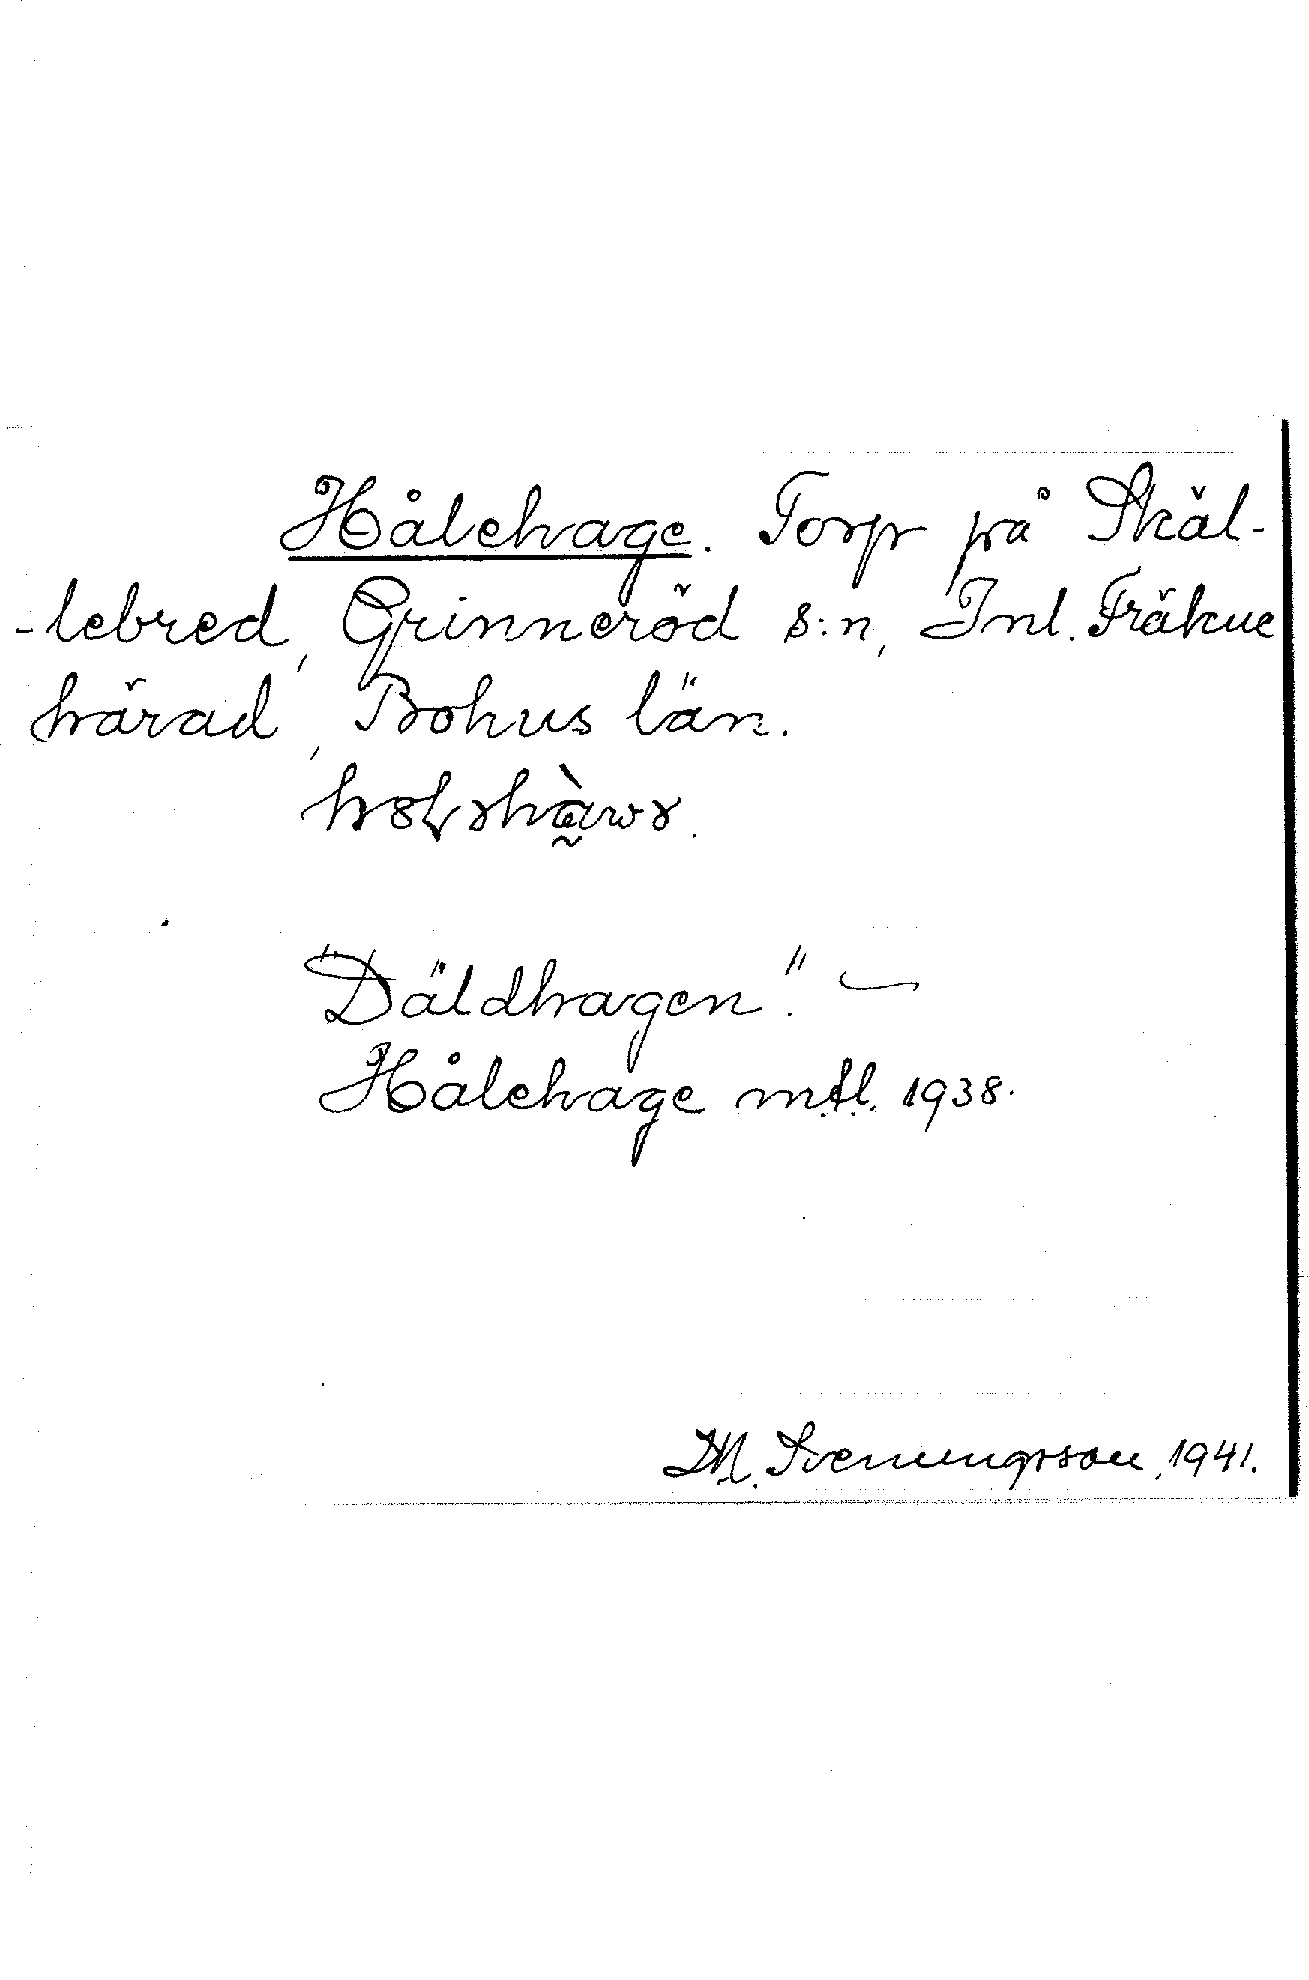 Hålehage. Torp på Skäl-
-lebred, Grinneröd s:n, Inl. Fräkne
härad, Bohus län.
"Däldhagen". —
Hålehage mtl. 1938.
M. Svenungsson, 1941.